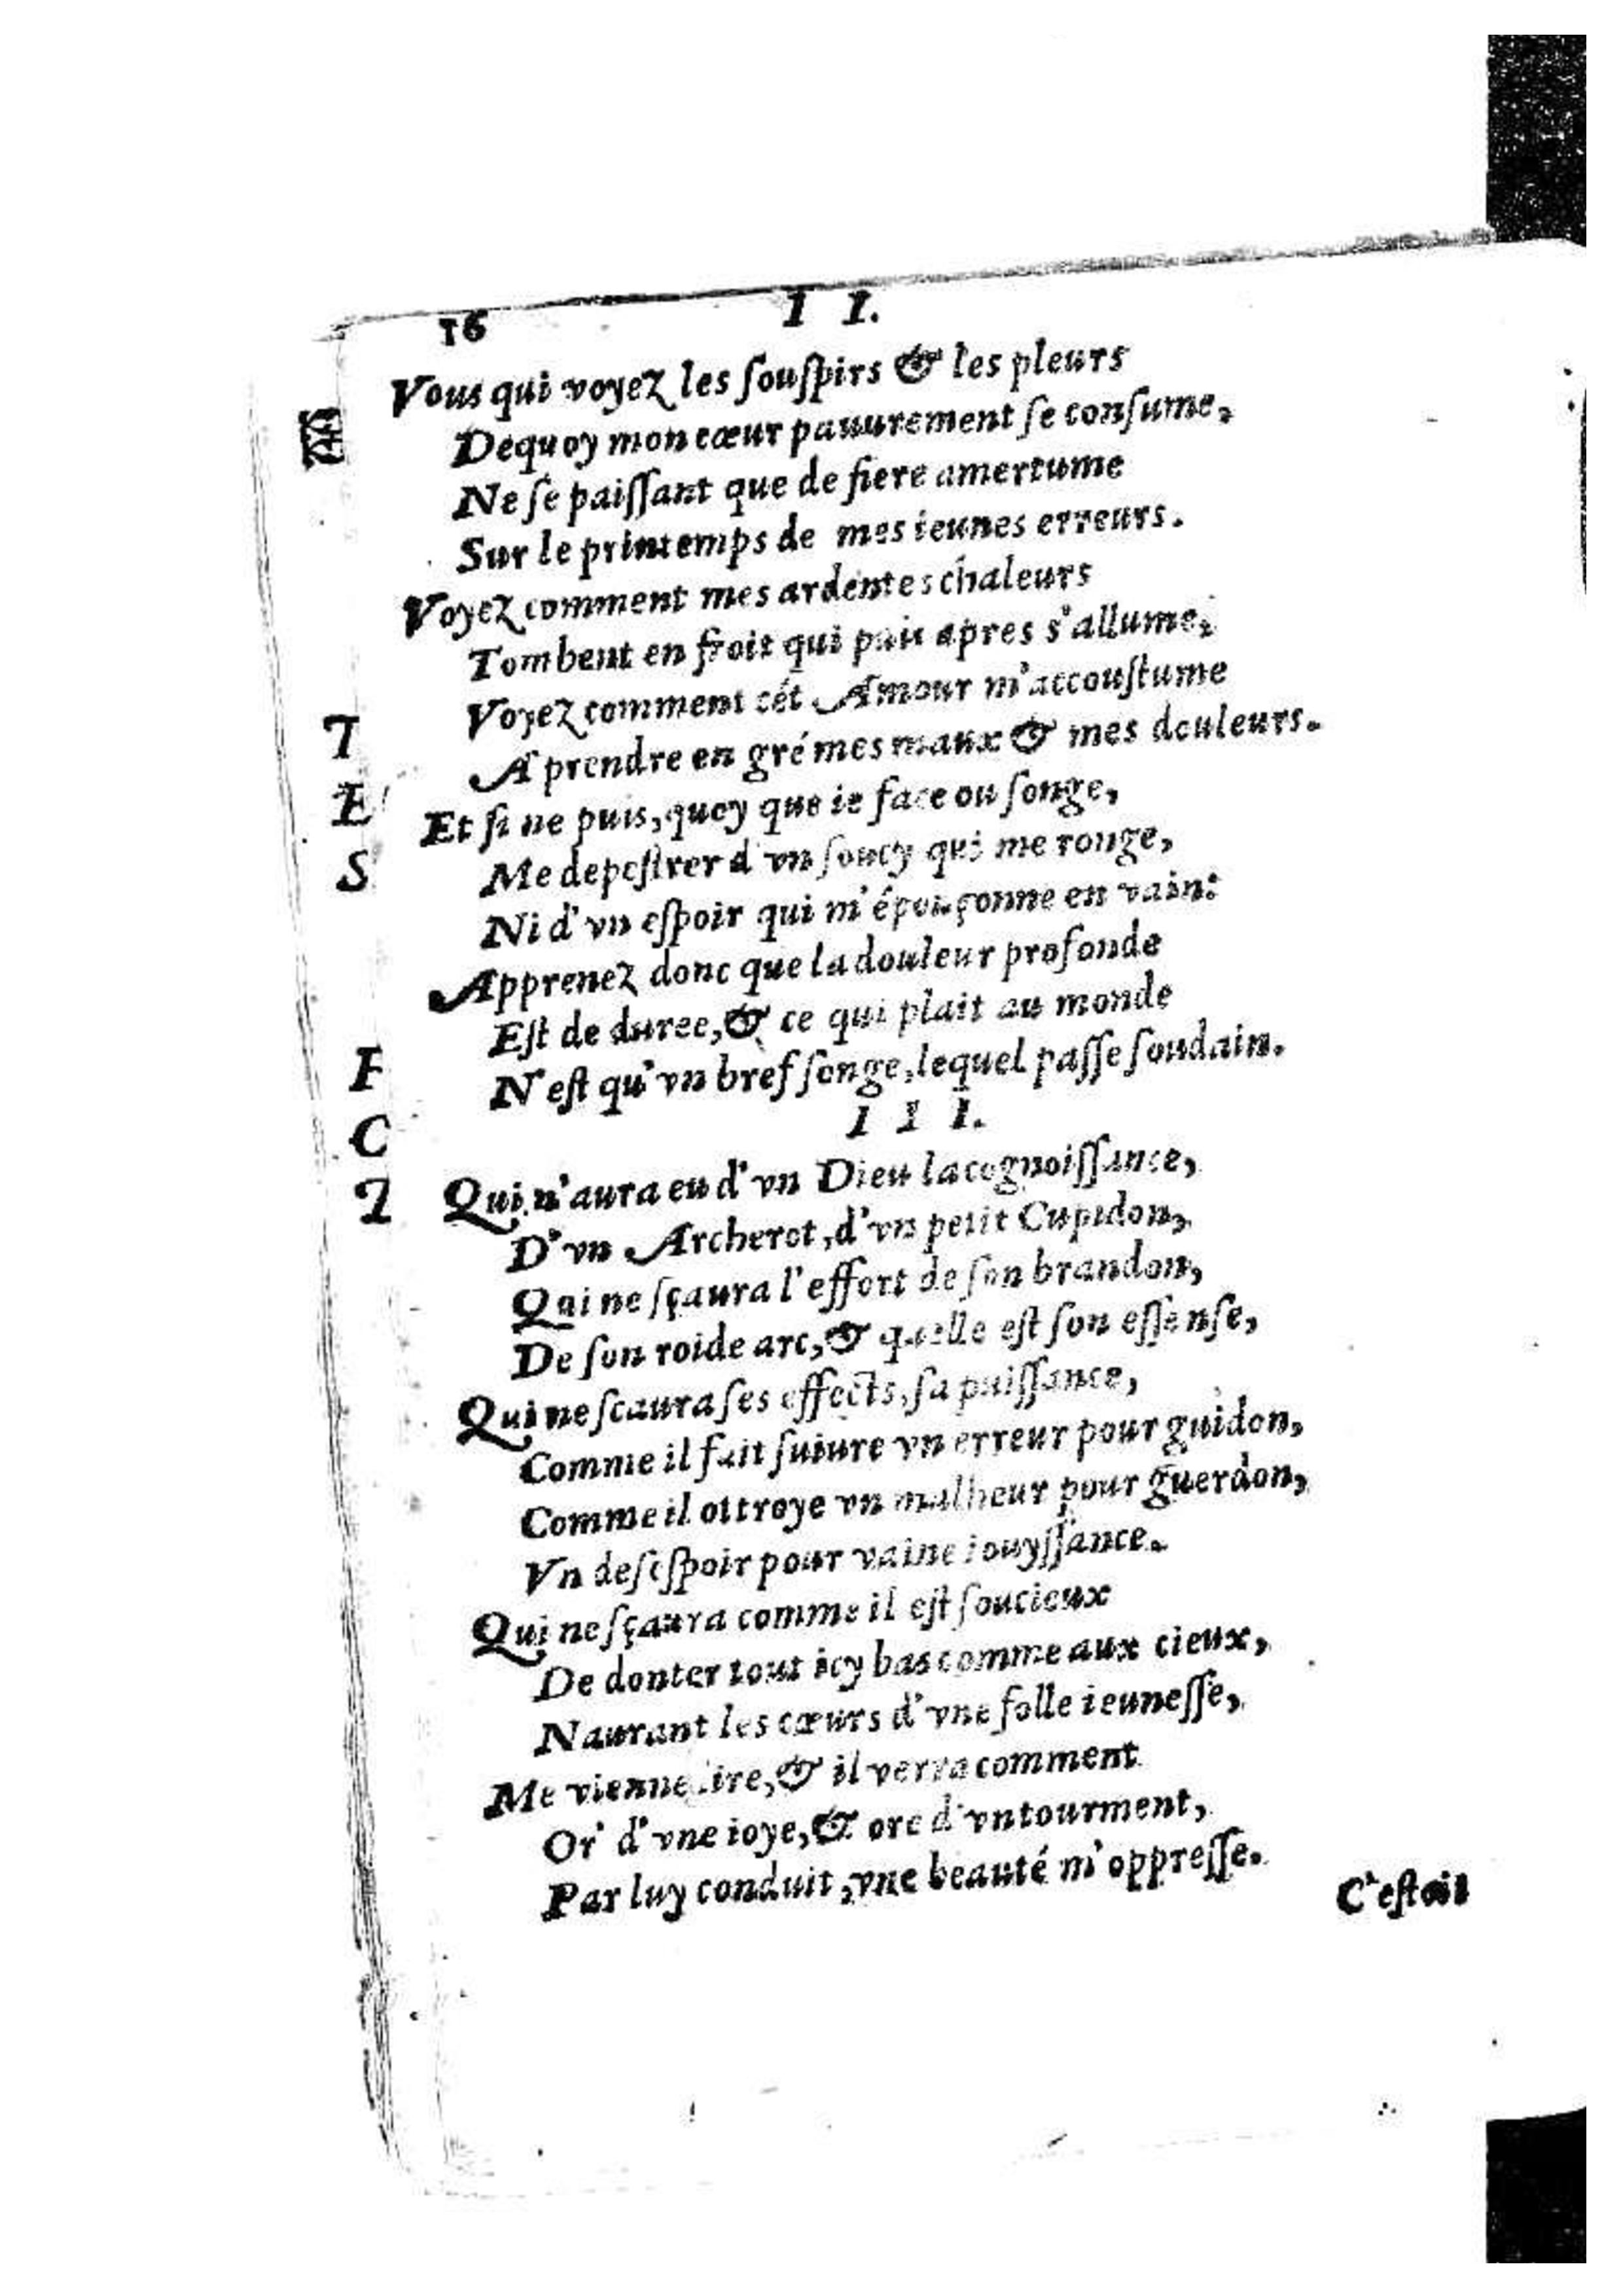 16
I I.
Vous qui voyez les souspirs & les pleurs
Dequoy mon cœur pauurement se consume,
Ne se paissant que de fiere amertume
Sur le printemps de mes ieunes erreurs.
Voyez comment mes ardentes chaleurs
Tombent en froit qui puis apres s'allume,
Voyez comment cét Amour m'accoustume
A prendre en gré mes maux & mes douleurs.
Et si ne puis, quoy que ie face ou songe,
Me depestrer d'vn soucy qui me ronge,
Ni d'vn espoir qui m'époinçonne en vain:
Apprenez donc que la douleur profonde
Est de duree, & ce qui plait au monde
N'est qu'vn bref songe, lequel passe soudain.
I I I.
Qui n'aura eu d'vn Dieu la cognoissance,
D'vn Archerot, d'vn petit Cupidon,
Qui ne sçaura l'effort de son brandon,
De son roide arc, & quelle est son essense,
Qui ne scaura ses effects, sa puissance,
Comme il fait suiure vn erreur pour guidon,
Comme il ottroye vn malheur pour guerdon,
Vn desespoir pour vaine iouyssance.
Qui ne sçaura comme il est soucieux
De donter tout icy bas comme aux cieux,
Naurant les cœurs d'vne folle ieunesse,
Me vienne lire, & il verra comment
Or' d'vne ioye, & ore d'vn tourment,
Par luy conduit, vne beauté m'oppresse.
C'estoit
T
E
S
F
C